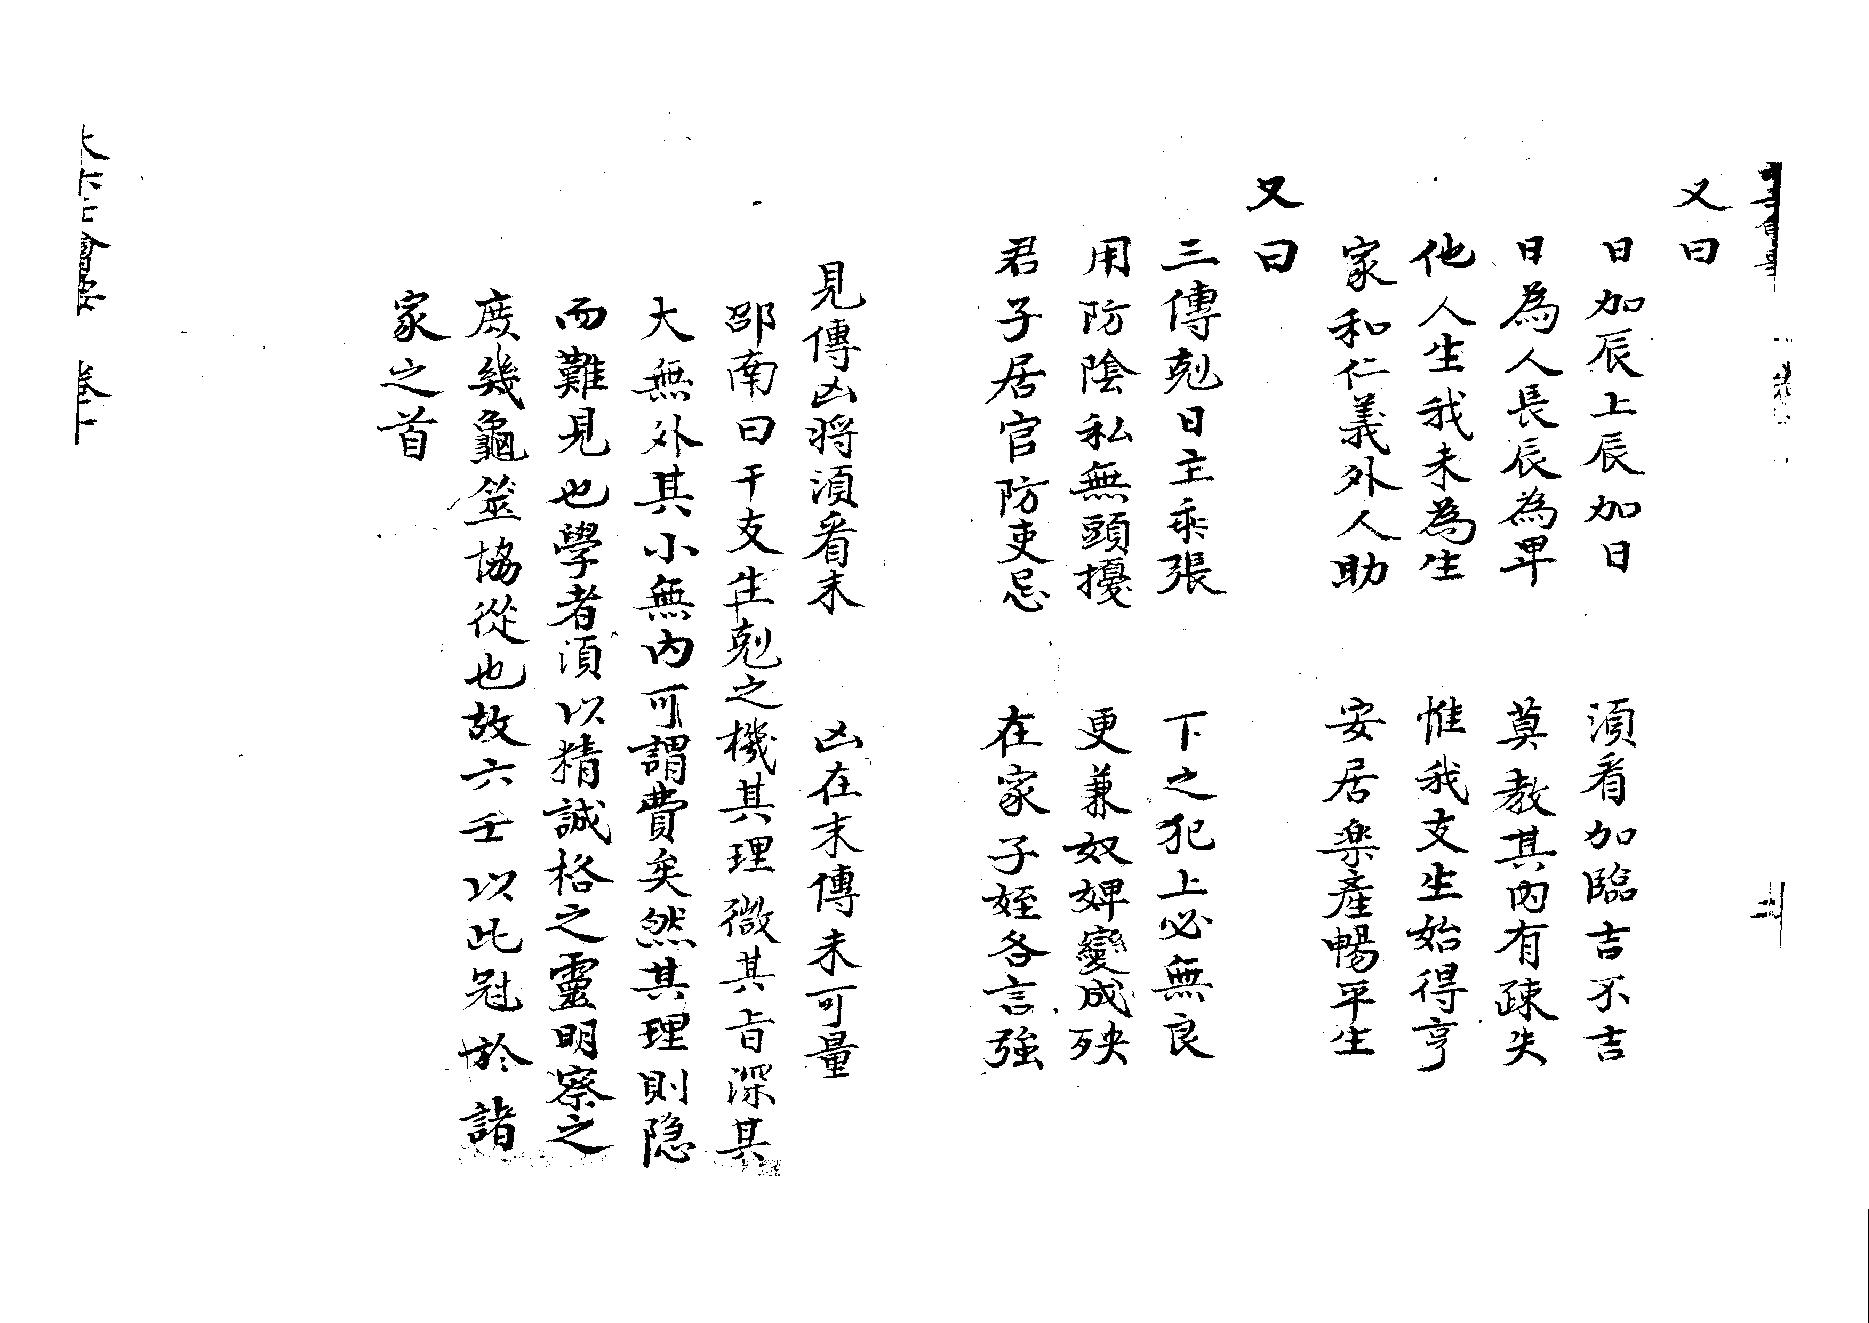 又曰
日加辰上辰加日　須看加臨吉不吉
日為人長辰為卑　莫教其內有疎失
他人生我未為生　惟我支生始得亨
家和仁義外人助　安居楽產暢平生
又曰
三傳剋日主乖張　下之犯上必無良
用防陰私無頭擾　更兼奴婢變成殃
君子居官防吏忌　在家子姪各言強
見傳凶将須看末　凶在末傳未可量
邵南曰干支生剋之機其理微其旨深其
大無外其小無內可謂費矣然其理則隐
而難見也學者須以精誠格之靈明察之
庻幾龜筮協從也故六壬以此冠於諸
家之首
大六壬會要　卷一